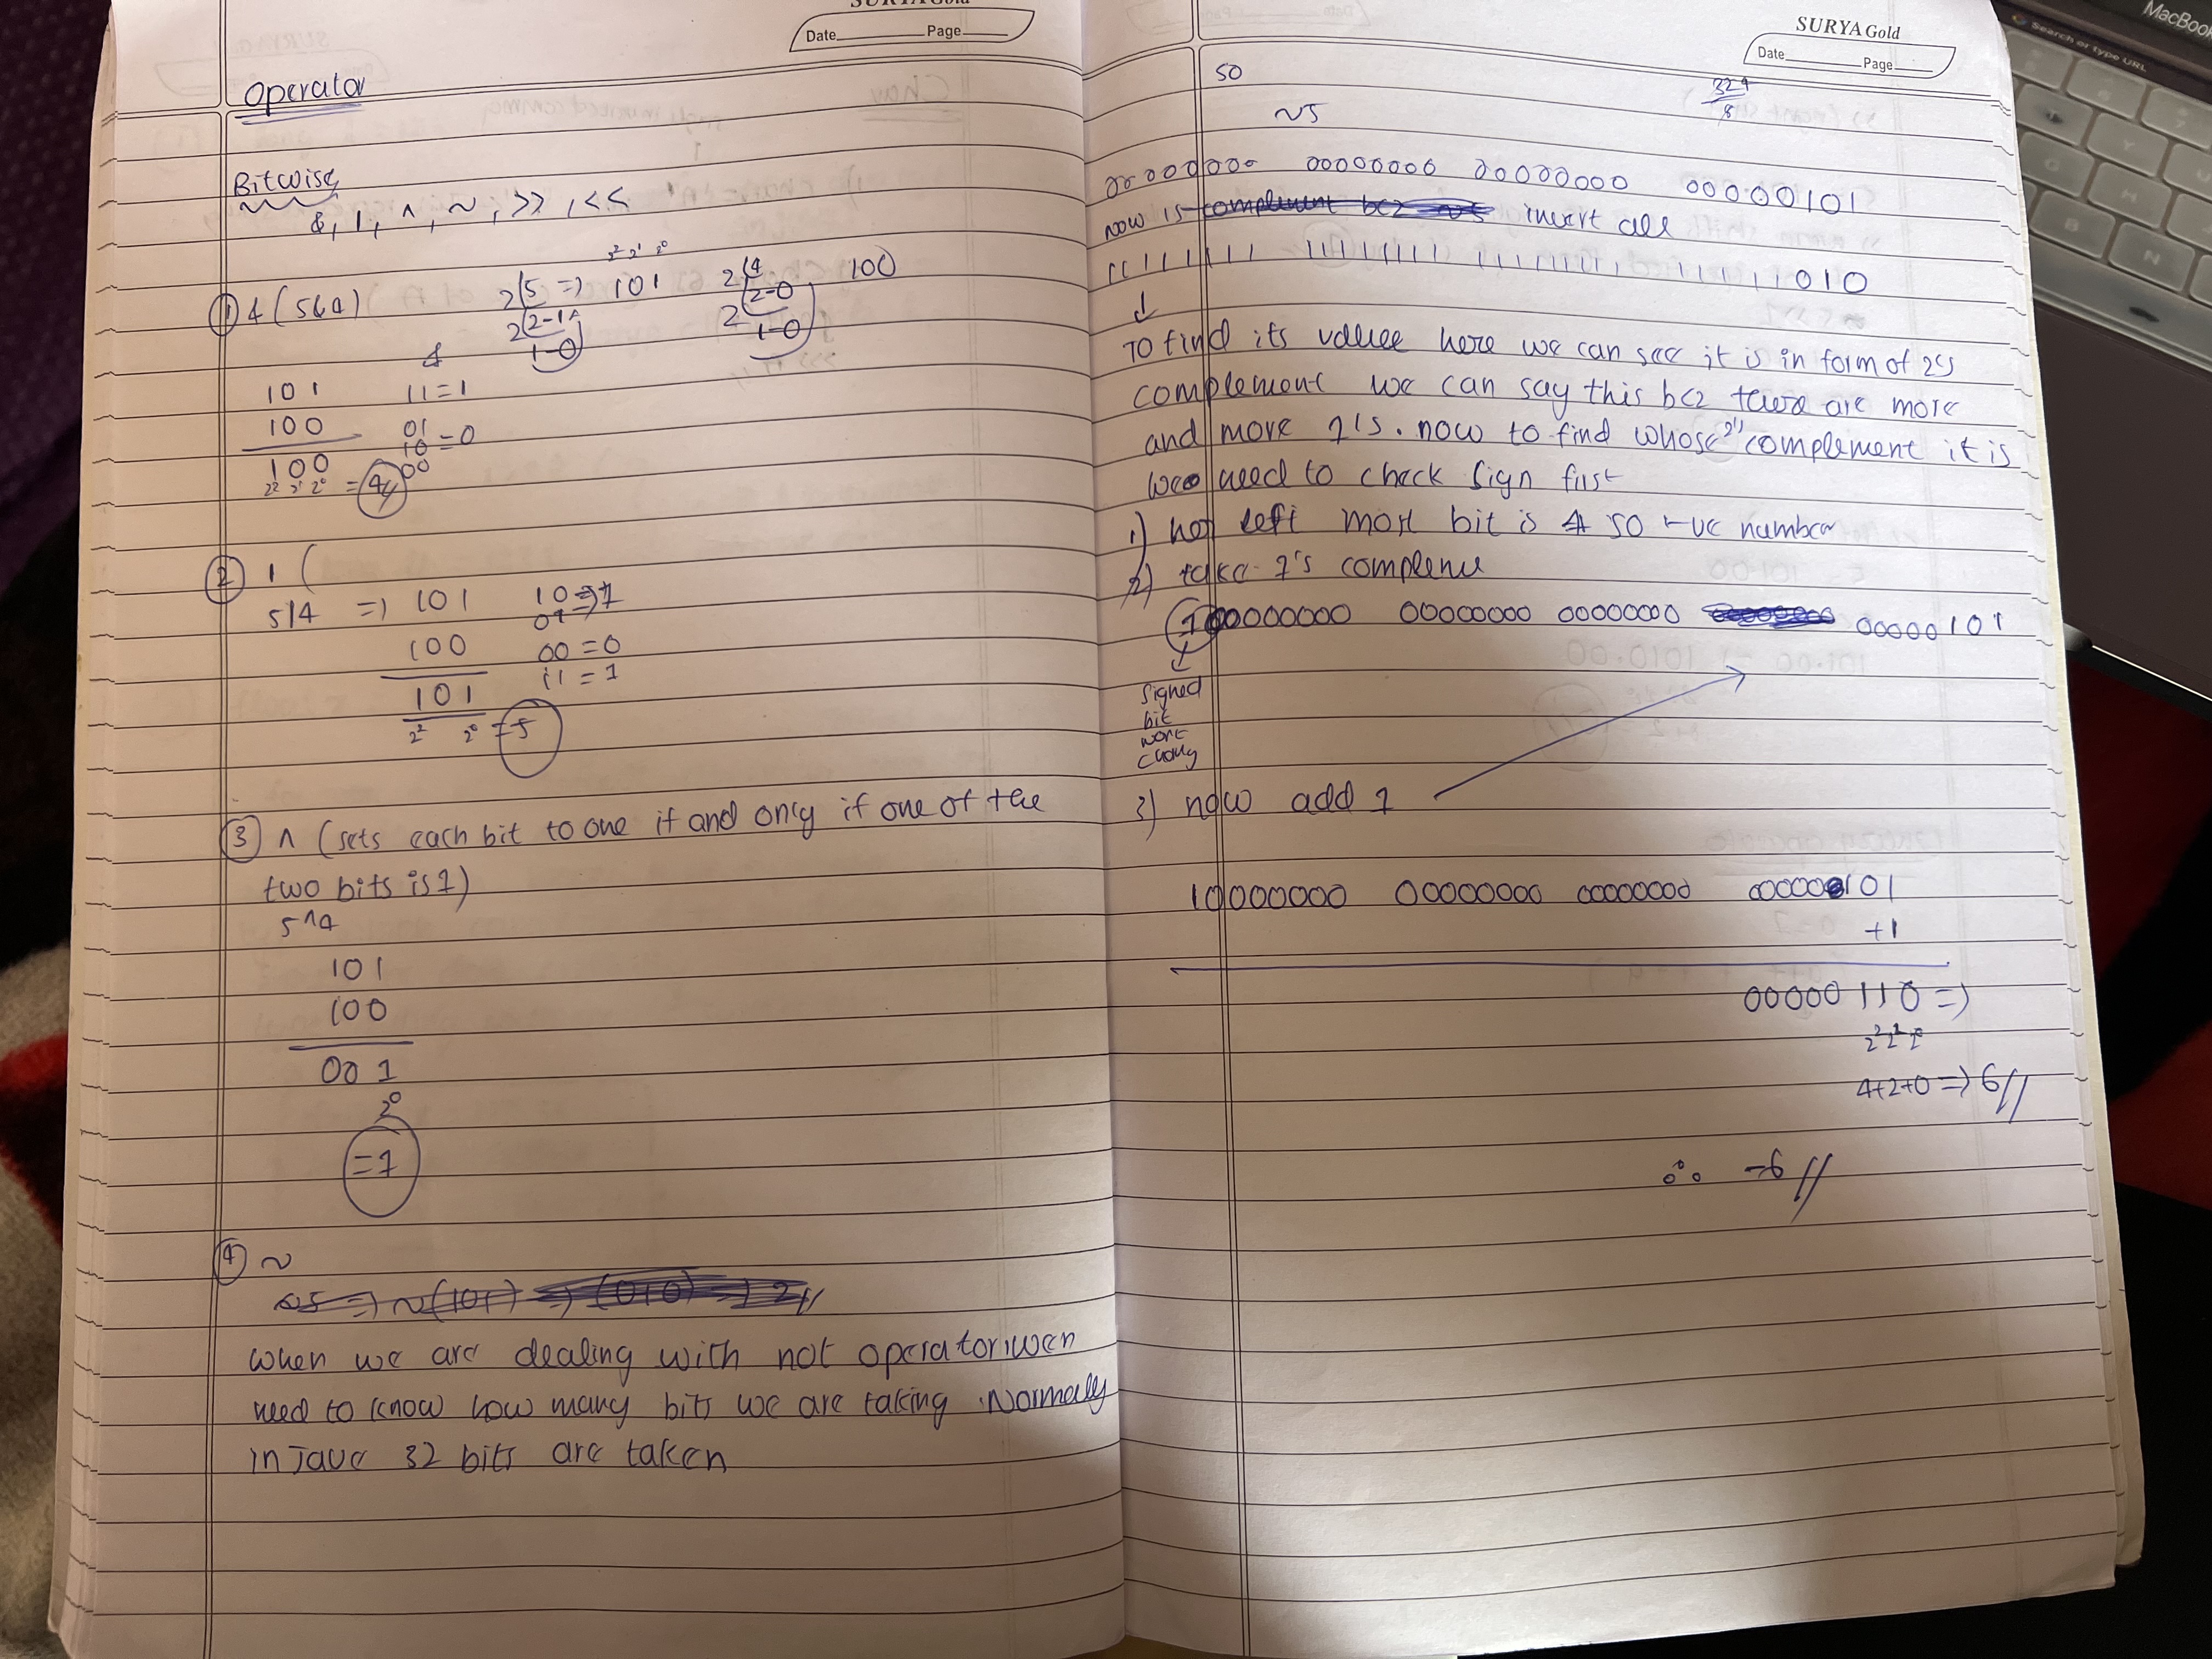 SURYA Gold
Date Page
Operator
Bitwise
&, |, ^, ~, >>, <<
2² 2¹ 2⁰
① & (5&4) 2|5 => 101 2|4 100
2|2-1 2|2-0
1-0 1-0
&
101 11=1
100 01
10=0
100 00
2² 2¹ 2⁰ = 4
② | (
5|4 => 101 10=>1
100 00=0
101 11=1
2² 2⁰ = 5
③ ^ (sets each bit to one if and only if one of the
two bits is 1)
5^4
101
100
001
2⁰
=1
④ ~
When we are dealing with not operator
need to know how many bits we are taking. Normally
in Java 32 bits are taken
SURYA Gold
Date Page
so
~5
00000000 00000000 00000000 00000101
now invert all
11111111 11111111 11111111 11111010
↓
To find its value here we can see it is in form of 2's
complement we can say this bcz there are more
and more 1's. now to find whose 2's complement it is
we need to check sign first
1) left most bit is 1 so -ve number
2) take 1's compleme
10000000 00000000 00000000 00000101
signed
bit
wont
chang
3) now add 1
10000000 00000000 00000000 00000101
+1
00000110 =>
2² 2¹ 2⁰
4+2+0 => 6//
∴ -6//
Search or type URL
MacBook